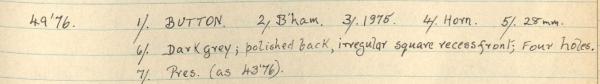 49'76. 1/. BUTTON. 2/. B'ham. 3/. 1975. 4/. Horn. 5/. 28mm.
6/. Dark grey; polished back, irregular square recess front; Four holes.
7/. Pres. (as 43'76).